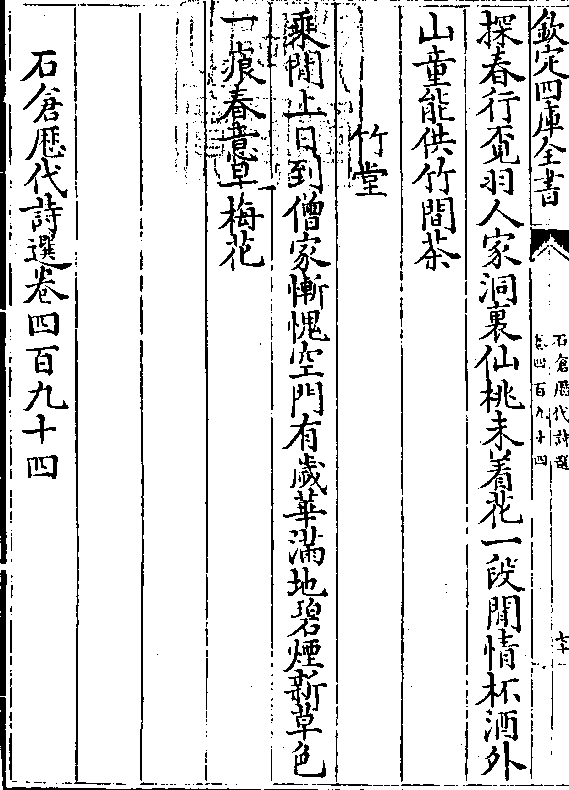 欽定四庫全書
石倉歷代詩選
卷四百九十四
七十
探春行覔羽人家洞裏仙桃未着花一段閒情杯酒外
山童能供竹間茶
竹堂
乗閒上日到僧家慚愧空門有歲華滿地碧煙新草色
一痕春意早梅花
石倉歷代詩選卷四百九十四